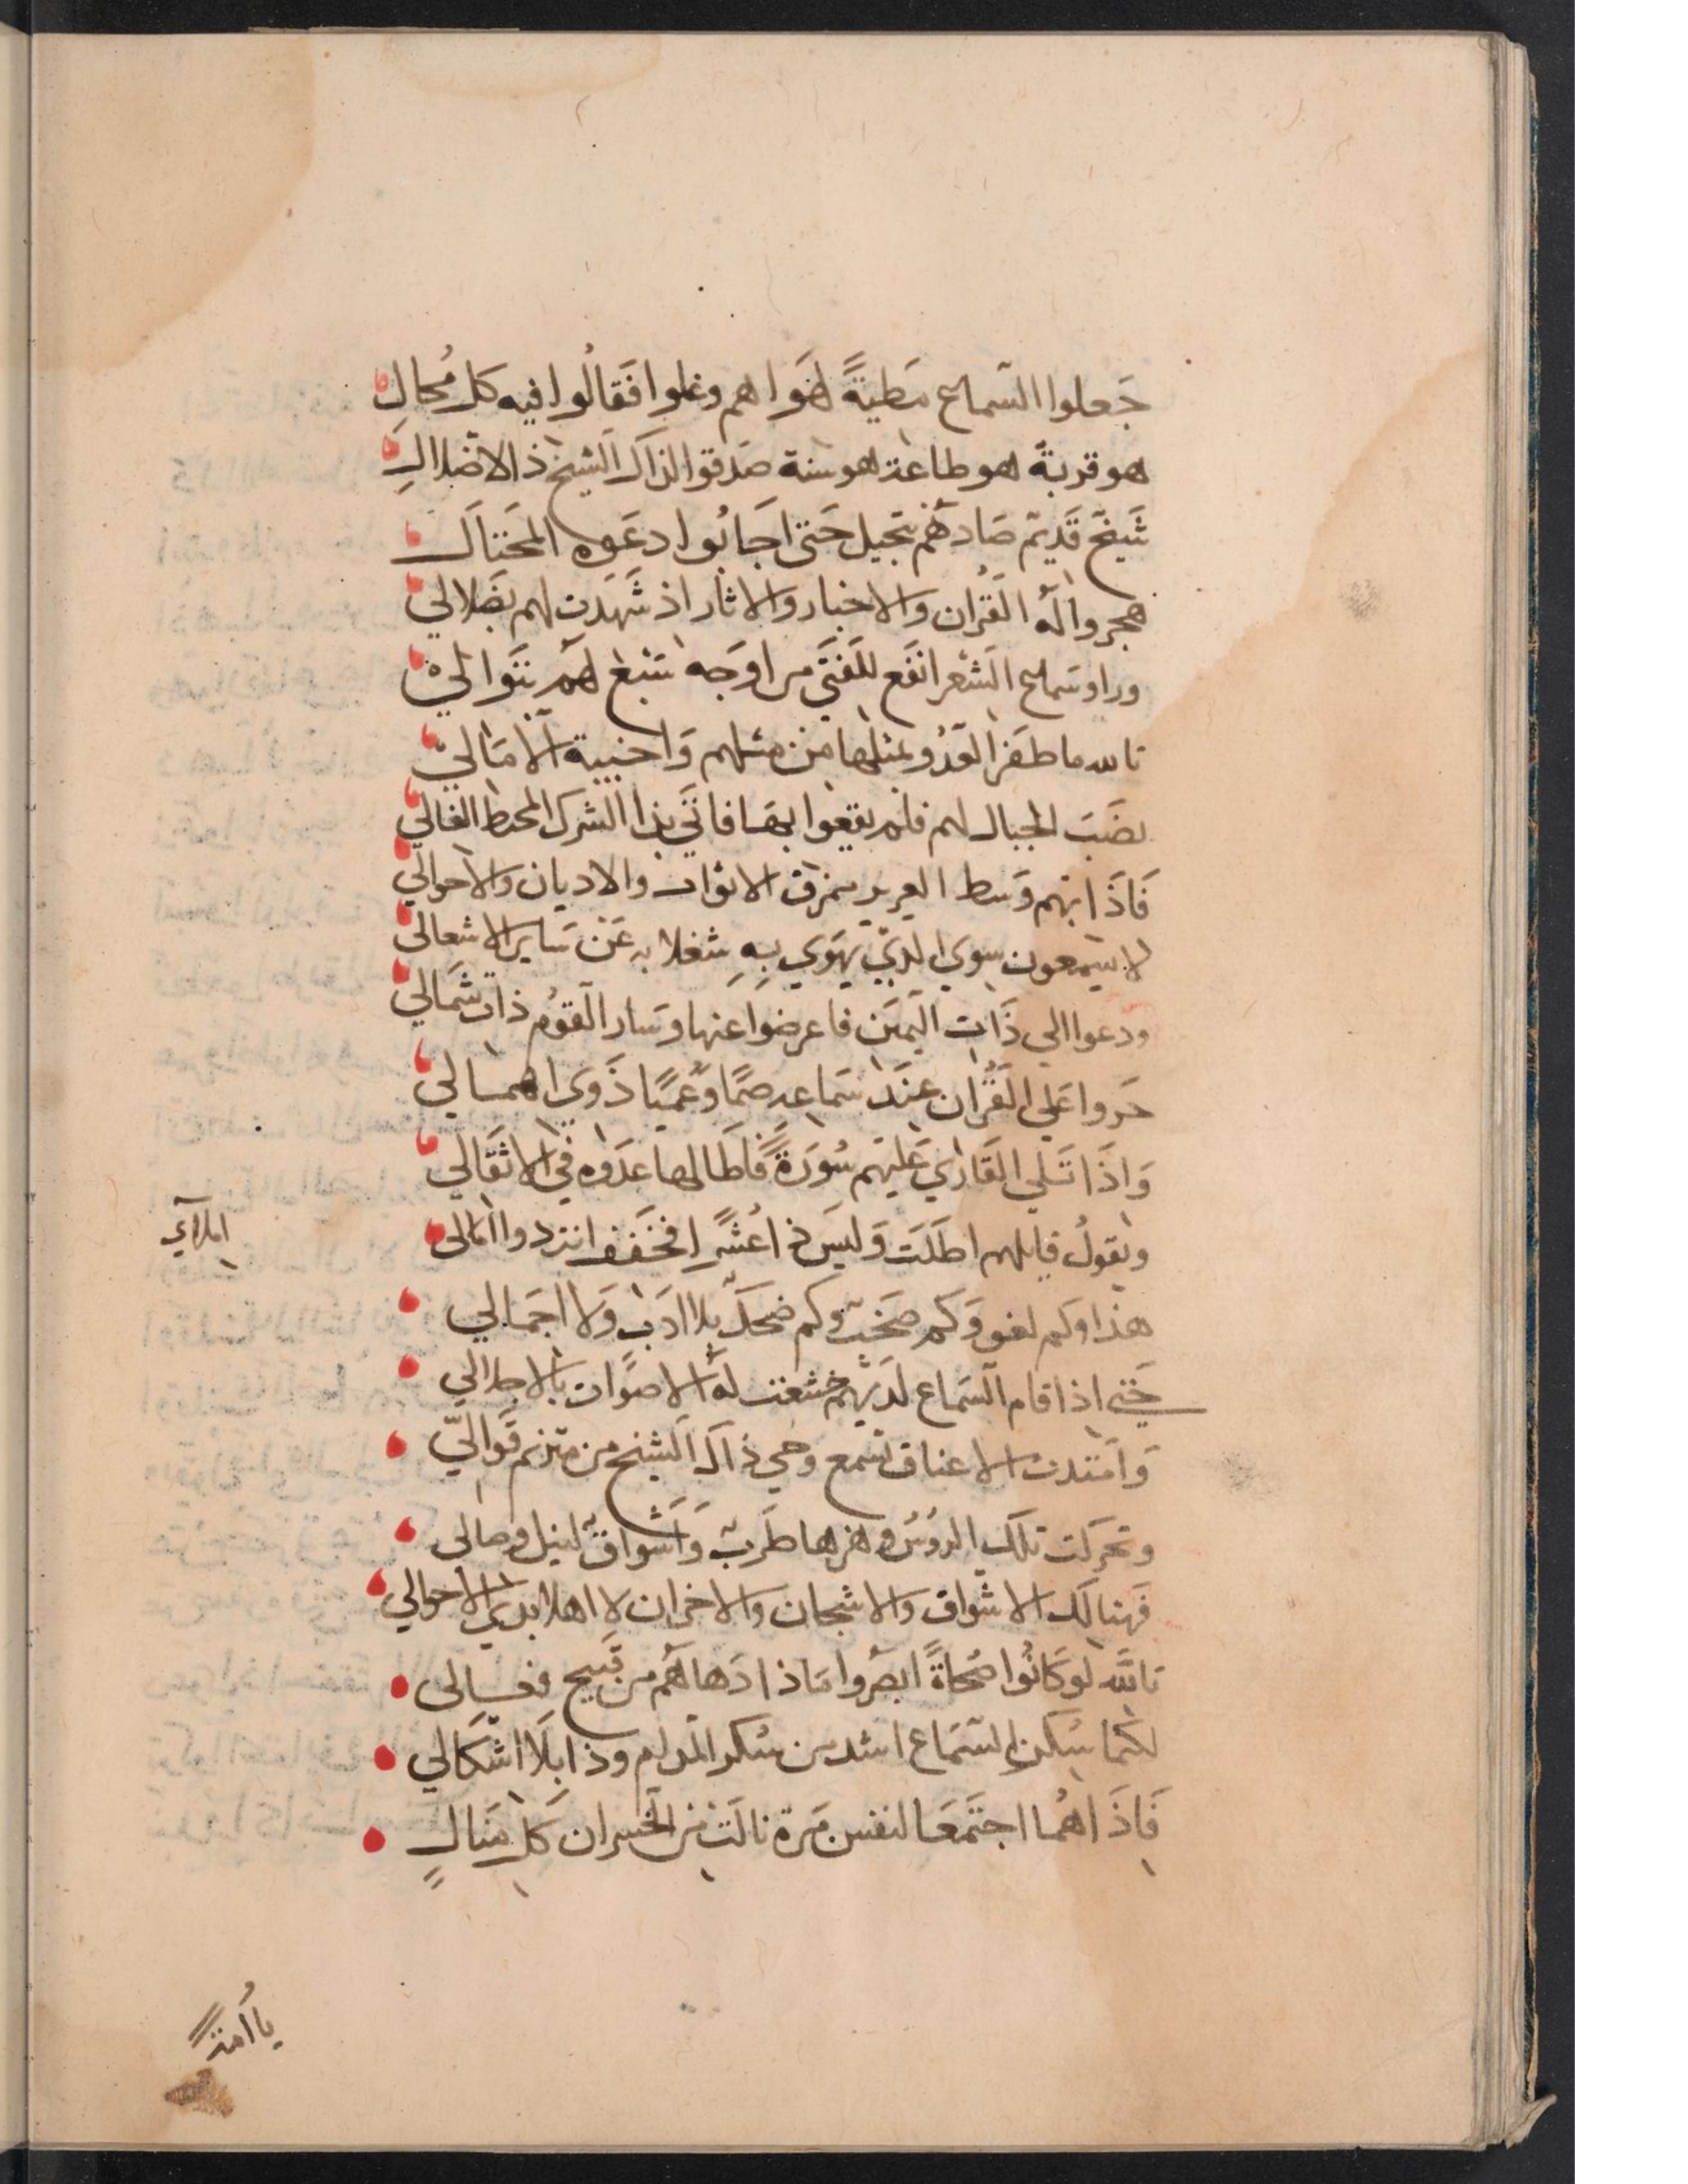 جَعلوا السَماع مَطيةً لهَواهم وغلوا فَقالُوا فيه كل مُحالِ
هو قربة هو طاعة هو سنة صَدقوا لذاك الشيخ ذ الاضلالِ
شَيخ قَديم صَادهُم بتحيل حَتى اجَابُوا دعَوه المحتاَل
هجروا لهُ القُران والاخبار والاثار اذ شَهدت لهم بضَلالي
وراو سَماع الشعر انفَع للفَتَى من اوجَه سَبع لهم بتَوالي
تالله ما ظفَر العَدُو بمثلها من مثلهم وَاخيبة الامَالي
نصَبَ الحبال لهم فلم يقعوا بهَا فاتَي بذا الشرك المحيط الغالي
فَاذَا بهم وَسط العرير ممزق الاثواب والاديان والاحوالي
لا يسَمعون سِوي الذي يهَوي بهِ شغلا به عَن سَاير الاشغالى
ودعوا الي ذَات اليمَين فاعرضوا عنها وسَار القوُم ذات شمَالي
خَروا عَلي القُران عِندَ سَماعه صمًا وعُميًا ذَوي اهمالي
وَاذَا تَلي القَارَي عَليهَم سُورَةً فاطَالها عدَوه في الاثَقالي
ويقولُ قايلهم اطَلت وَليسَ ذ اعُشر اِفخَفف انت ذو املالى
املاآي
هذا وكم لغو وَكم صَخب وكم ضحك بلا ادَب وَلا اجمَالي
حَتي اذا قام السَماع لدَيهم خشعت لهُ الاصوَات بالاجلالي
وَامتدت الاعناق تسَمع وحي ذاك الشيخ من مترنم قوالي
وتحركت تلك الروُسُ وهزها طَربٌ وَاشواق لنيل وصالى
فَهنالك الاشواق والاشجان والاحزان لا اهلا بذي الاحوالي
تالله لو كَانُوا صُحاةً ابصَروا مَاذا دَهاهُم من قَبيح فعالى
لكنما سُكر السَماع اشد من سُكر المدام وذا بلا اشكالي
فَاذَا هُما اجتَمعَا لنفس مَرة نالَت من الخسران كل مَنالٍ
يا اُمة